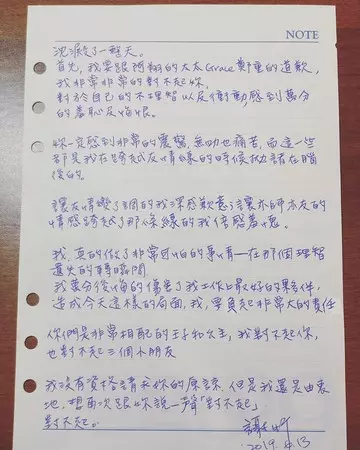 NOTE
沉澱了一整天。
首先，我要跟阿翔的太太Grace鄭重的道歉，
我非常非常的對不起妳，
對於自己的不理智以及衝動感到萬分
的羞恥及悔恨。
妳一定感到非常的震驚，無助也痛苦，而這一些
都是我在跨越友情線的時候拋諸在腦
後的。
讓友情變了調的我深感歉意這讓亦師亦友的
情感跨越了那條線的我倍感羞愧。
我，真的做了非常可怕的事情—在那個理智
遺失的轉瞬間，
我萬分後悔的傷害了我工作上最好的夥伴，
造成今天這樣的局面，我，要負起非常大的責任
你們是非常相配的王子和公主，我對不起你，
也對不起三個小朋友
我沒有資格請求你的原諒，但是我還是由衷
地，想再次跟妳說一聲「對不起」
對不起。
謝忻
2019.4.13